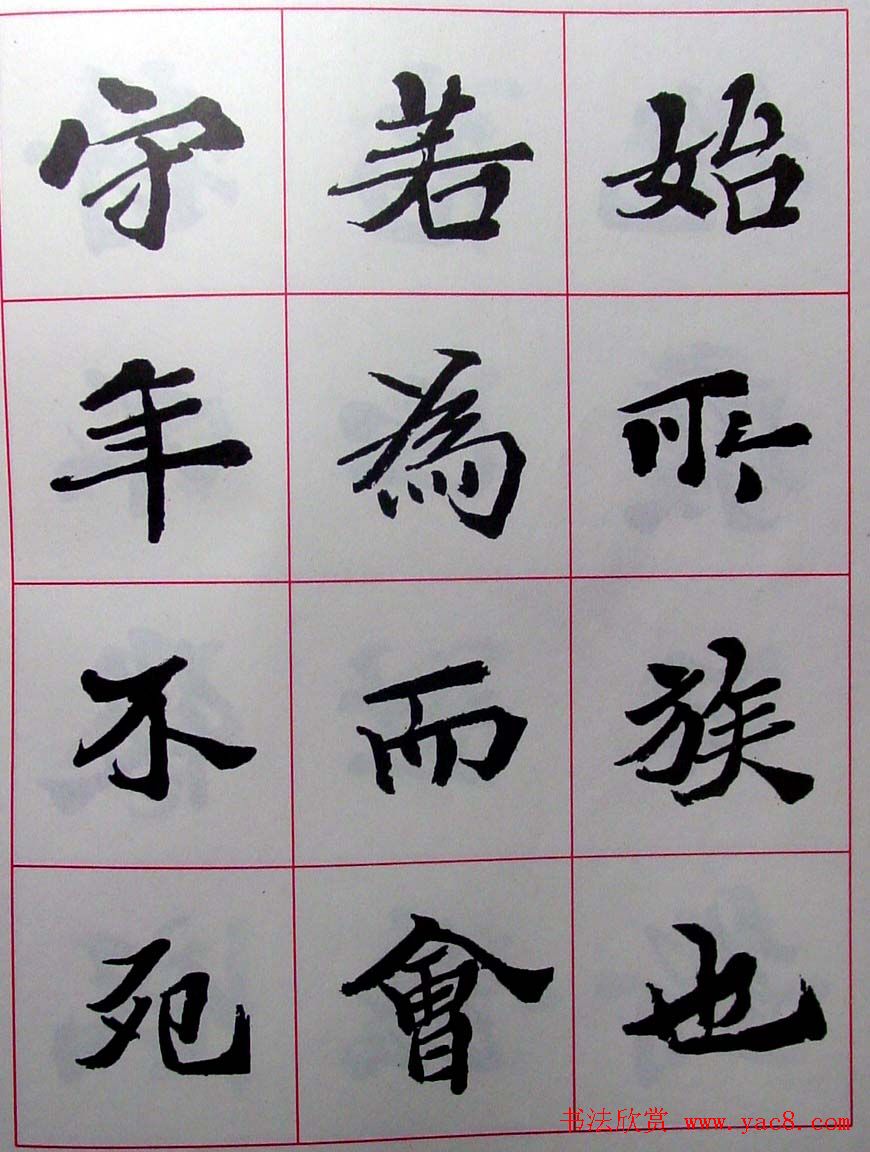 始所族也
若為而會
守年不死
书法欣赏 www.yac8.com